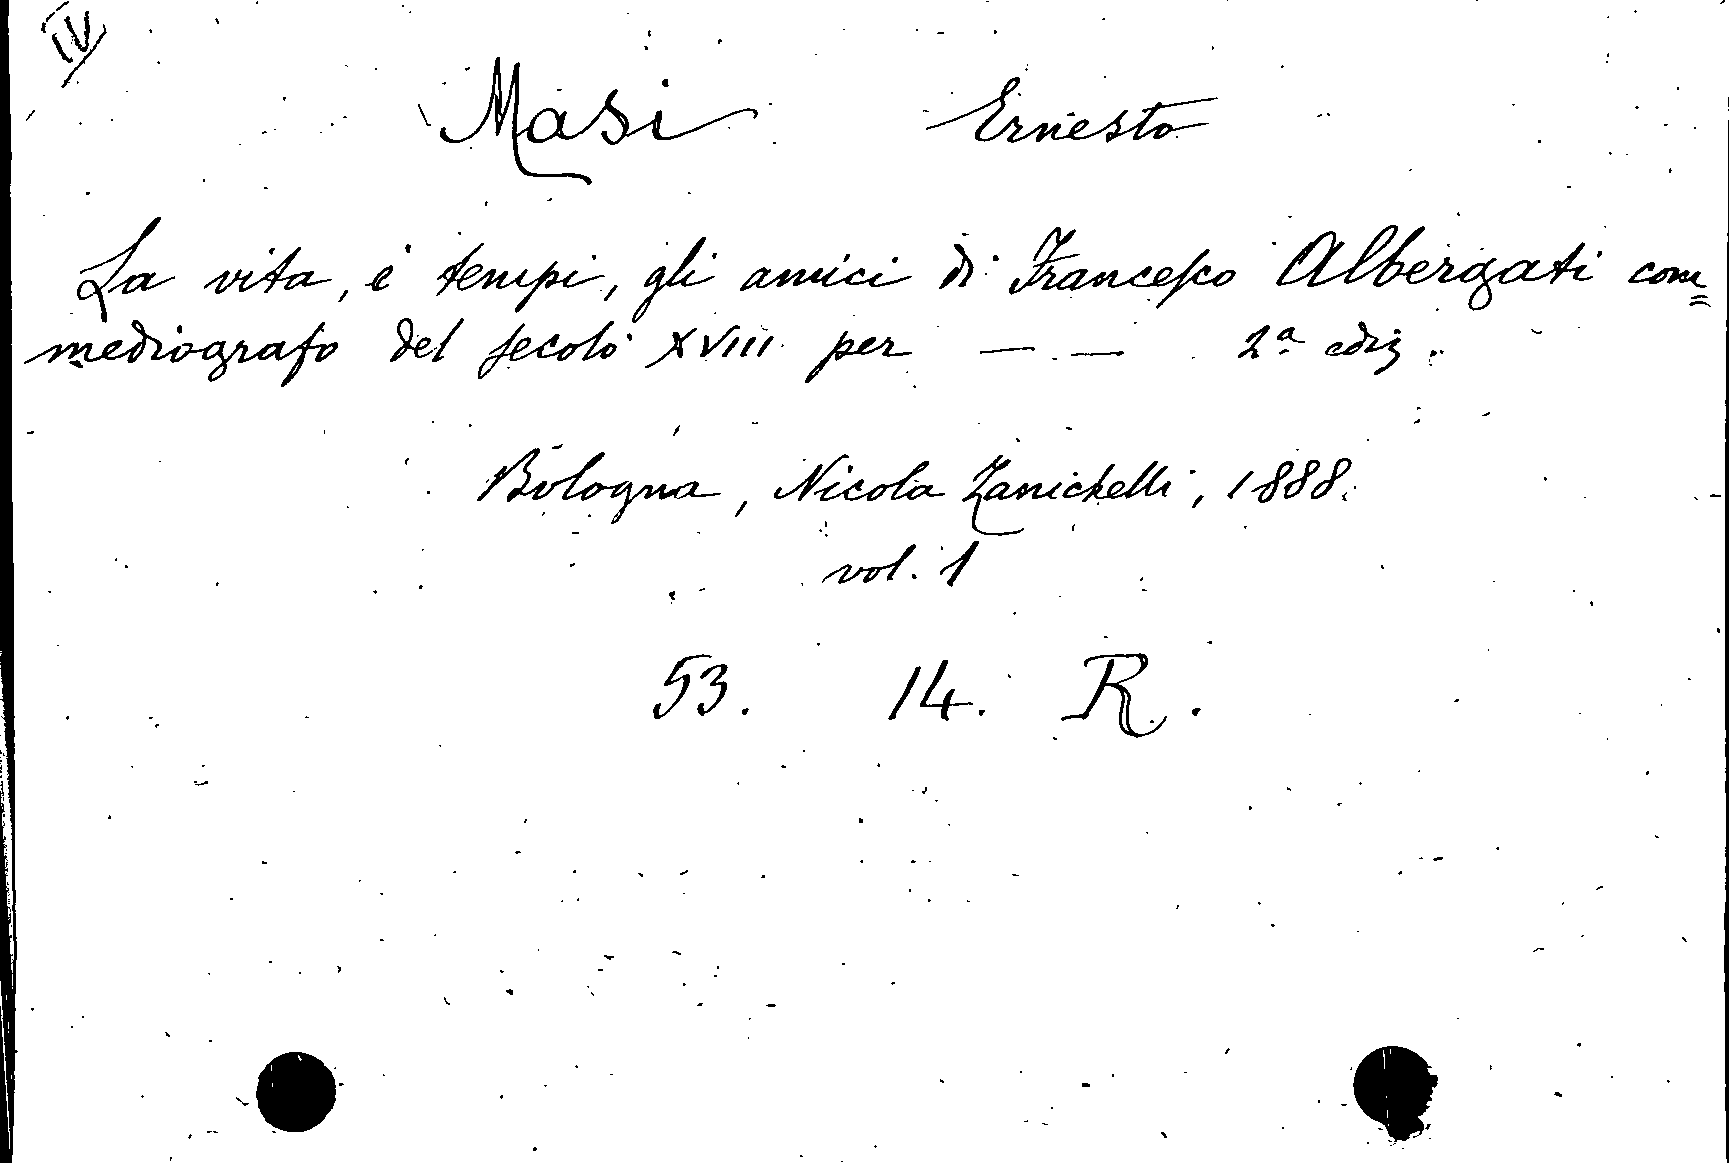 IV
Masi Ernesto
La vita, i tempi, gli amici di Francesco Albergati com=
mediografo del secolo XVIII per — — 2ª ediz.
Bologna, Nicola Zanichelli, 1888.
vol. 1
53. 14. R.